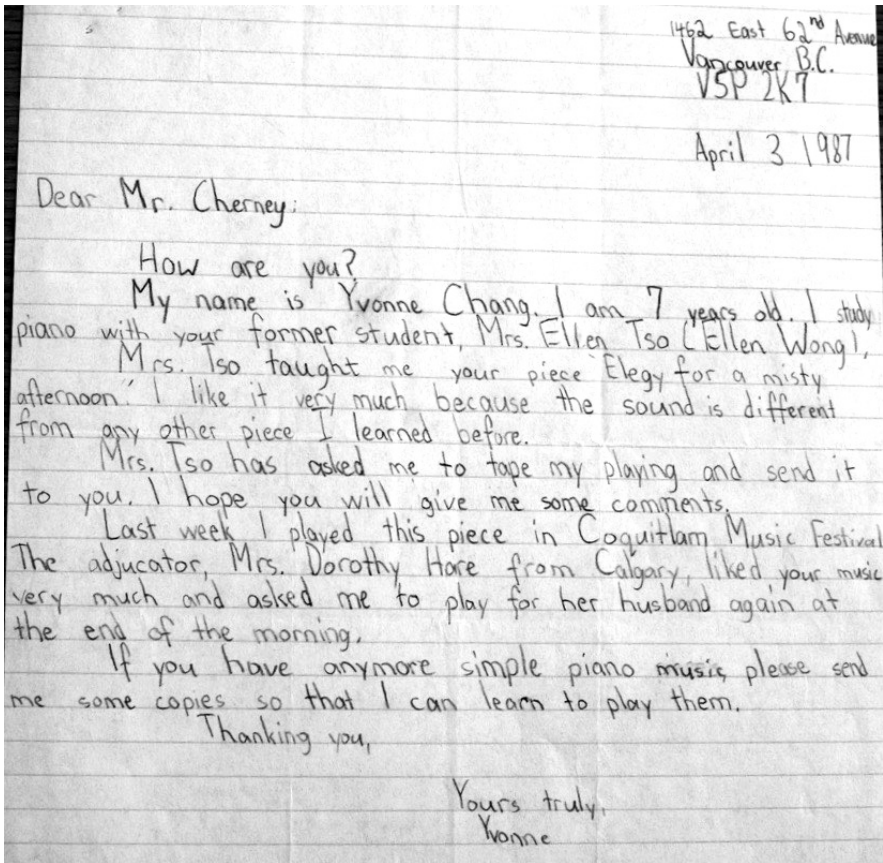 1462 East 62nd Avenue
Vancouver, B.C.
V5P 2K7
April 3 1987
Dear Mr. Cherney:
How are you?
My name is Yvonne Chang. I am 7 years old. I study
piano with your former student, Mrs. Ellen Tso (Ellen Wong).
Mrs. Tso taught me your piece "Elegy for a misty
afternoon." I like it very much because the sound is different
from any other piece I learned before.
Mrs. Tso has asked me to tape my playing and send it
to you. I hope you will give me some comments.
Last week I played this piece in Coquitlam Music Festival
The adjucator, Mrs. Dorothy Hare from Calgary, liked your music
very much and asked me to play for her husband again at
the end of the morning.
If you have anymore simple piano music, please send
me some copies so that I can learn to play them.
Thanking you,
Yours truly,
Yvonne